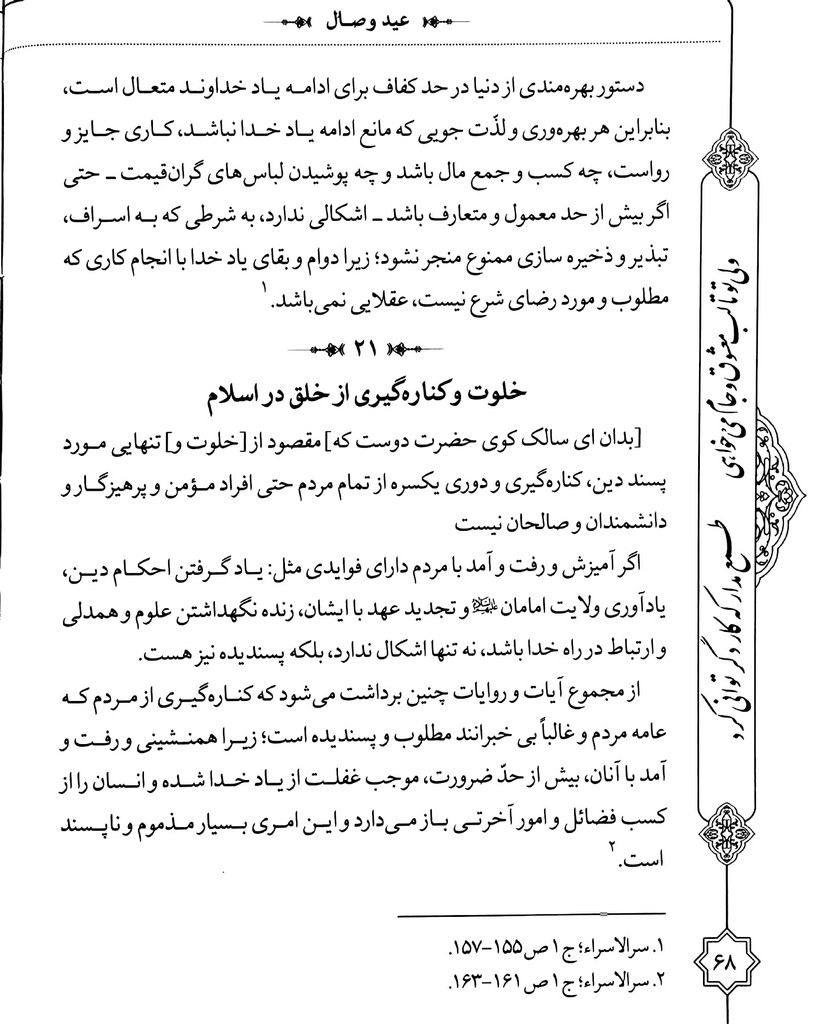 عید وصال
دستور بهره‌مندی از دنیا در حد کفاف برای ادامـه یـاد خداونـد متعـال اسـت،
بنابراین هر بهره‌وری و لذّت جویی که مانع ادامه یاد خـدا نباشـد، کـاری جـایز و
رواست، چه کسب و جمع مال باشد و چه پوشیدن لباس‌های گران‌قیمت ـ حتی
اگر بیش از حد معمول و متعارف باشد ـ اشکالی ندارد، به شرطی که بـه اسـراف،
تبذیر و ذخیره سازی ممنوع منجر نشود؛ زیرا دوام و بقای یاد خدا با انجام کاری که
مطلوب و مورد رضای شرع نیست، عقلایی نمی‌باشد.۱
۲۱
خلوت و کناره‌گیری از خلق در اسلام
[بدان ای سالک کوی حضرت دوست که] مقصود از [خلوت و] تنهایی مـورد
پسند دین، کناره‌گیری و دوری یکسره از تمام مردم حتی افراد مـؤمن و پرهیزگـار و
دانشمندان و صالحان نیست
اگر آمیزش و رفت و آمد با مردم دارای فوایدی مثل: یـاد گـرفتن احکـام دیـن،
یادآوری ولایت امامان علیهم‌السلام و تجدید عهد با ایشان، زنده نگهداشتن علوم و همدلی
و ارتباط در راه خدا باشد، نه تنها اشکال ندارد، بلکه پسندیده نیز هست.
از مجموع آیات و روایات چنین برداشت می‌شود که کنـاره‌گیری از مـردم کـه
عامه مردم و غالباً بی خبرانند مطلوب و پسندیده است؛ زیـرا همنـشینی و رفـت و
آمد با آنان، بیش از حدّ ضرورت، موجب غفلـت از یـاد خـدا شـده و انسـان را از
کسب فضائل و امور آخرتـی بـاز مـی‌دارد و ایـن امـری بسـیار مـذموم و ناپـسند
است.۲
۱. سرالاسراء؛ ج ۱ ص ۱۵۵-۱۵۷.
۲. سرالاسراء؛ ج ۱ ص ۱۶۱-۱۶۳.
ولی تو تا لب معشوق و جام می‌خواهی
طمع مدار که کار دگر توانی کرد
۶۸